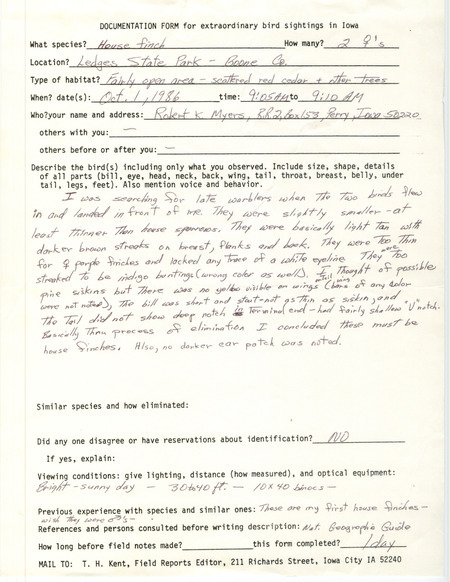 DOCUMENTATION FORM for extraordinary bird sightings in Iowa
What species? House finch How many? 2 ♀'s
Location? Ledges State Park - Boone Co.
Type of habitat? Fairly open area - scattered red cedar + other trees
When? date(s): Oct. 1, 1986 time: 9:05AM to 9:10 AM
Who?your name and address: Robert K. Myers, RR2, Box 153, Perry, Iowa 50220
others with you: —
others before or after you: —
Describe the bird(s) including only what you observed. Include size, shape, details
of all parts (bill, eye, head, neck, back, wing, tail, throat, breast, belly, under
tail, legs, feet). Also mention voice and behavior.
I was searching for late warblers when the two birds flew
in and landed in front of me. They were slightly smaller - at
least thinner than house sparrows. They were basically light tan with
darker brown streaks on breast, flanks and back. They were too thin
for ♀ purple finches and lacked any trace of a white eyeline. They were too
streaked to be indigo buntings (wrong color as well). I thought of possible
pine siskins but there was no yellow visible on wings (bars of any color
were not noted), the bill was short and stout - not as thin as siskin, and
the tail did not show deep notch to terminal end - had fairly shallow "U" notch.
Basically thru process of elimination I concluded these must be
house finches. Also, no darker ear patch was noted.
Similar species and how eliminated:
Did any one disagree or have reservations about identification? NO
If yes, explain:
Viewing conditions: give lighting, distance (how measured), and optical equipment:
Bright - sunny day — 30 to 40 ft. — 10 X 40 binocs —
Previous experience with species and similar ones: These are my first house finches -
wish they were ♂'s -
References and persons consulted before writing description: Nat. Geographic Guide
How long before field notes made? this form completed? 1 day
MAIL TO: T. H. Kent, Field Reports Editor, 211 Richards Street, Iowa City IA 52240